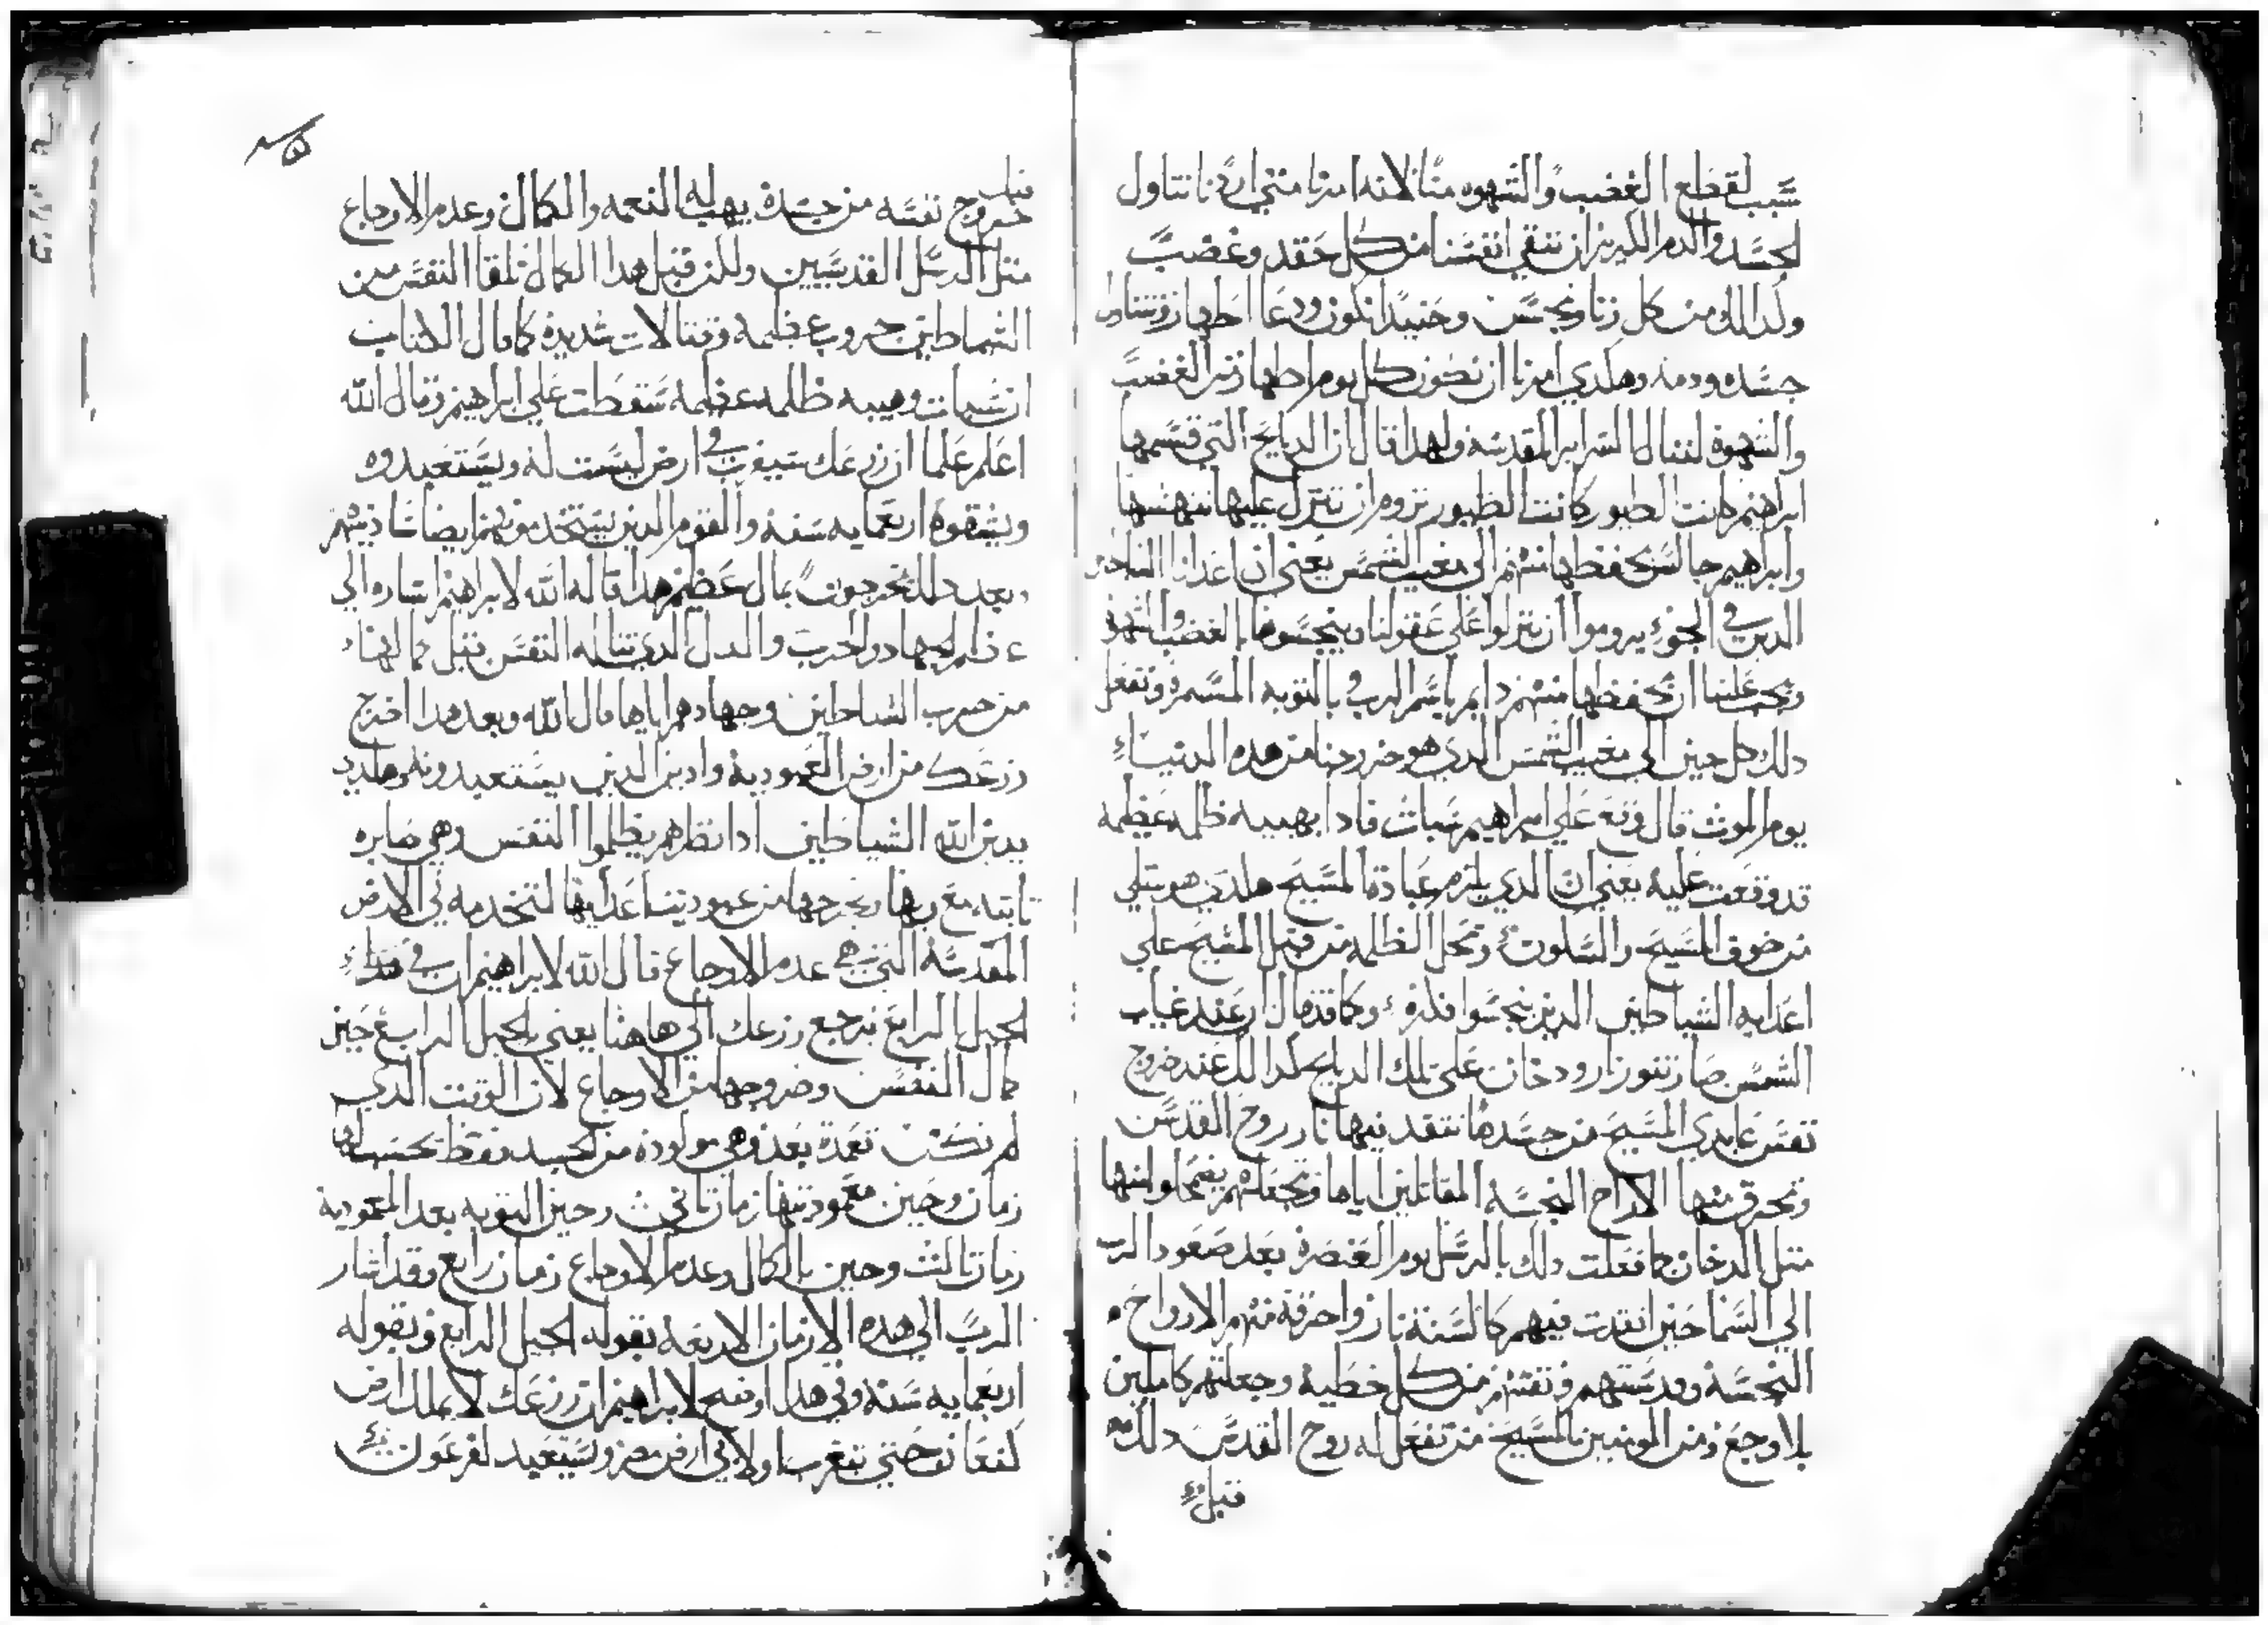 سبب لقطع الغضب والشهوه منا لانه امرنا متي اردنا نتناول
الجسد والدم الكريم ان ننقي انفسنا من كل حقد وغضب
ولدالك من كل زنا ونجس وحنيدا نكون ودعا اطهار ونتناول
جسده ودمه وهكدي امرنا ان نكون كل يوم اطهار من الغضب
والشهوة لننال السراير المقدسه ولهدا قال ان الدبايح التي قسمها
ابراهيم كانت الطيور تروم ان تنزل عليها تنهشها
وابراهيم جالس يحفظها منهم الي مغيب الشمس يعني ان اعدانا
الدين في الجو يروموا ان ينزلوا علي عقولنا وينجسوها بالغضب والشهوة
ويجب علينا ان نحفظها منهم دايم باسم الرب بالتوبه المستمرة ونفعل
دلك كل حين الي مغيب الشمس الدي هو خروجنا من هده الدنيا
يوم الموت قال وقع علي ابراهيم سبات فادا بهيبه ظلمه عظيمه
قد وقعت عليه يعني ان الدي يلزم عبادة المسيح هكدي هو يمتلي
من خوف المسيح والسكون وتحل الظلمه من قبل المسيح علي
اعدايه الشياطين الدين ينجسوا فكره وكما قد قال ان عند غياب
الشمس صار تنور نار ودخان علي تلك الدبايح كدالك عند خروج
نفس عابدي المسيح من جسدها تتقد فيها نار روح القدس
وتحرق منها الارواح النجسه المقاتلين اياها وتجعلهم يضمحلوا منها
متل الدخان كما فعلت دلك بالرسل يوم العنصرة بعد صعود الرب
الي السما حين اتقدت فيهم كالسنة نار واحرقة منهم الارواح
النجسه وقدستهم ونقتهم من كل خطيه وجعلتهم كاملين
بلا وجع ومن المومنين بالمسيح من تفعل له روح القدس دلك
قبل
قبل
خروج نفسه من جسده يهب له النعمه والكمال وعدم الاوجاع
متل الرسل القديسين ولكن قبل هدا الكمال تلقا النفس من
الشياطين حروب عظيمه وقتالات شديده كما قال الكتاب
ان سبات وهيبه ظلمه عظيمه سقطت علي ابراهيم وقال الله
اعلم علما ان زرعك سيغرب في ارض ليست له ويستعبدوه
ويشقوه اربعمايه سنه والقوم الدين يستخدمونهم ايضا انا دينهم
وبعد دلك يخرجون بمال عظيم هدا قاله الله لابراهيم اشاره الي
عظم الجهاد والحرب والدل الدي تناله النفس قبل كمالها
من حرب الشياطين وجهادهم اياها قال الله وبعد هدا اخرج
زرعك من ارض العبودية وادين الدين يستعبدونه وهكدي
يدين الله الشياطين ادا نظرهم يظلموا النفس وهي صابره
تابته مع ربها ويخرجها من عبودية اعدايها لتخدمه في الارض
المقدسه التي هي عدم الاوجاع قال الله لابراهيم ان في
الجيل الرابع يرجع زرعك الي هاهنا يعني بالجيل الرابع حين
كمال النفس وخروجها من الاوجاع لان الوقت الدي
لم تكن تعمدة بعد وهي مولوده من الجسد فقط يحسب لها
زمان وحين معموديتها زمان تاني وحين التوبه بعد المعموديه
زمان تالت وحين الكمال وعدم الاوجاع زمان رابع وقد اشار
الرب الي هده الازمان الاربعه بقوله الجيل الرابع وبقوله
اربعمايه سنه وفي هدا اوضح لابراهيم ان زرعك لا يملك ارض
كنعان حتي يتغرب اولا في ارض مصر ويستعبد لفرعون